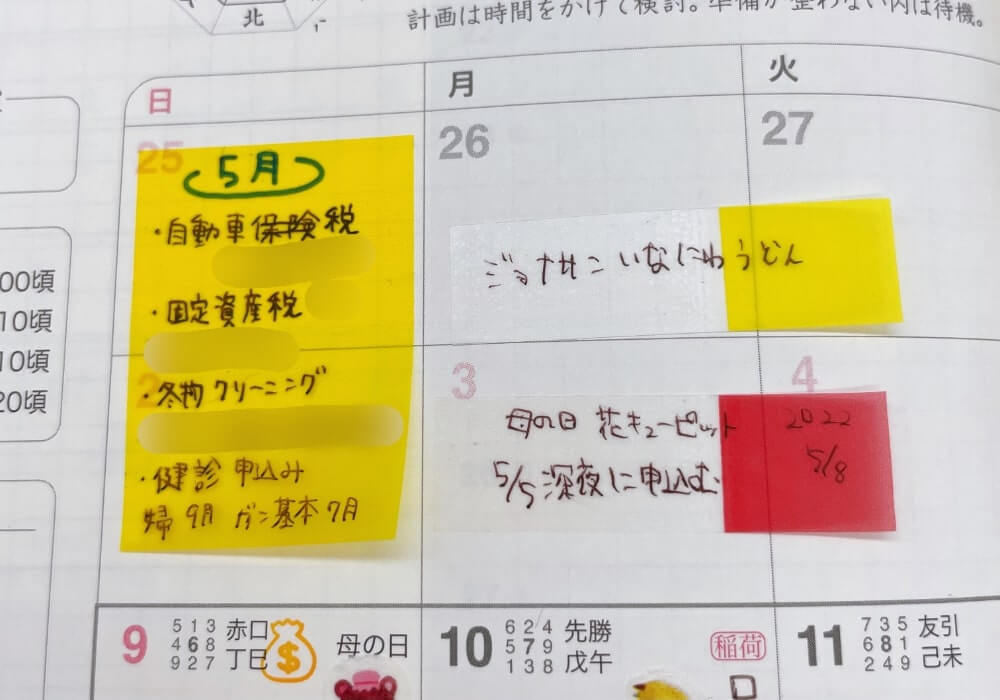 北
計画は時間をかけて検討。準備が整わない内は待機。
日
月
火
25
26
27
5月
・自動車保険税
・固定資産税
・冬物クリーニング
・健診 申込み
婦 9月 ガン基本 7月
ジョナサン いなにわうどん
00頃
10頃
10頃
20頃
2
3
4
母の日 花キューピット
5/5 深夜に申込む
2022
5/8
9
5 1 3
4 6 8
9 2 7
赤口
丁巳
$
母の日
10
6 2 4
5 7 9
1 3 8
先勝
戊午
稲荷
11
7 3 5
6 8 1
2 4 9
友引
己未